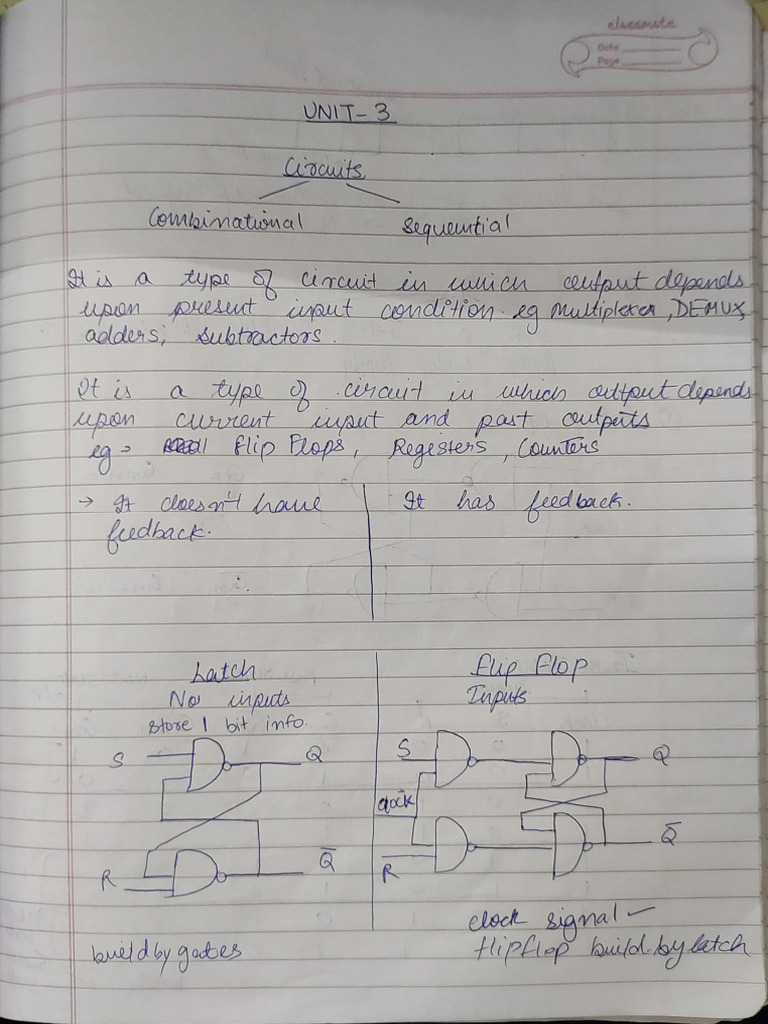 classmate
Date
Page
UNIT-3
Circuits
Combinational Sequential
It is a type of circuit in which output depends
upon present input condition. eg multiplexer, DEMUX,
adders, subtractors.
It is a type of circuit in which output depends
upon current input and past outputs
eg → flip flops, Regesters, Counters
→ It doesn't have
feedback.
It has feedback.
Latch
No inputs
store 1 bit info.
S Q
R Q̅
build by gates
Flip Flop
Inputs
S Q
clock
R Q̅
clock signal ✓
flipflop build by latch